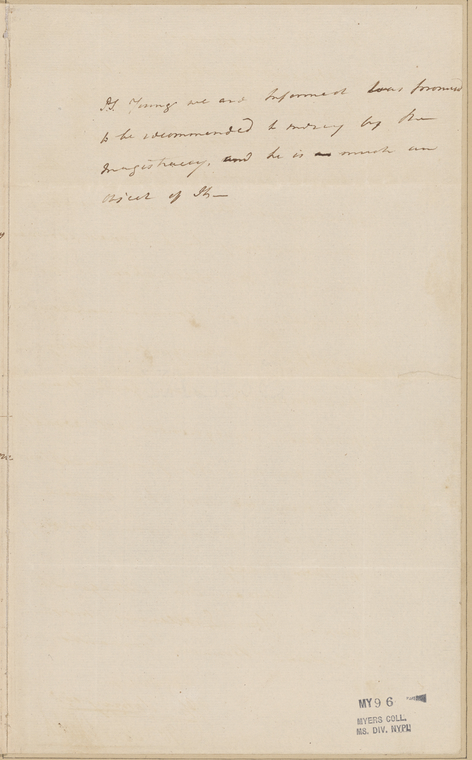 P.S. Young we are Informed was promised
to be recommended to mercy by the
Magistracy, and he is as much an
object of It—
MY 96
MYERS COLL.
MS. DIV. NYPL